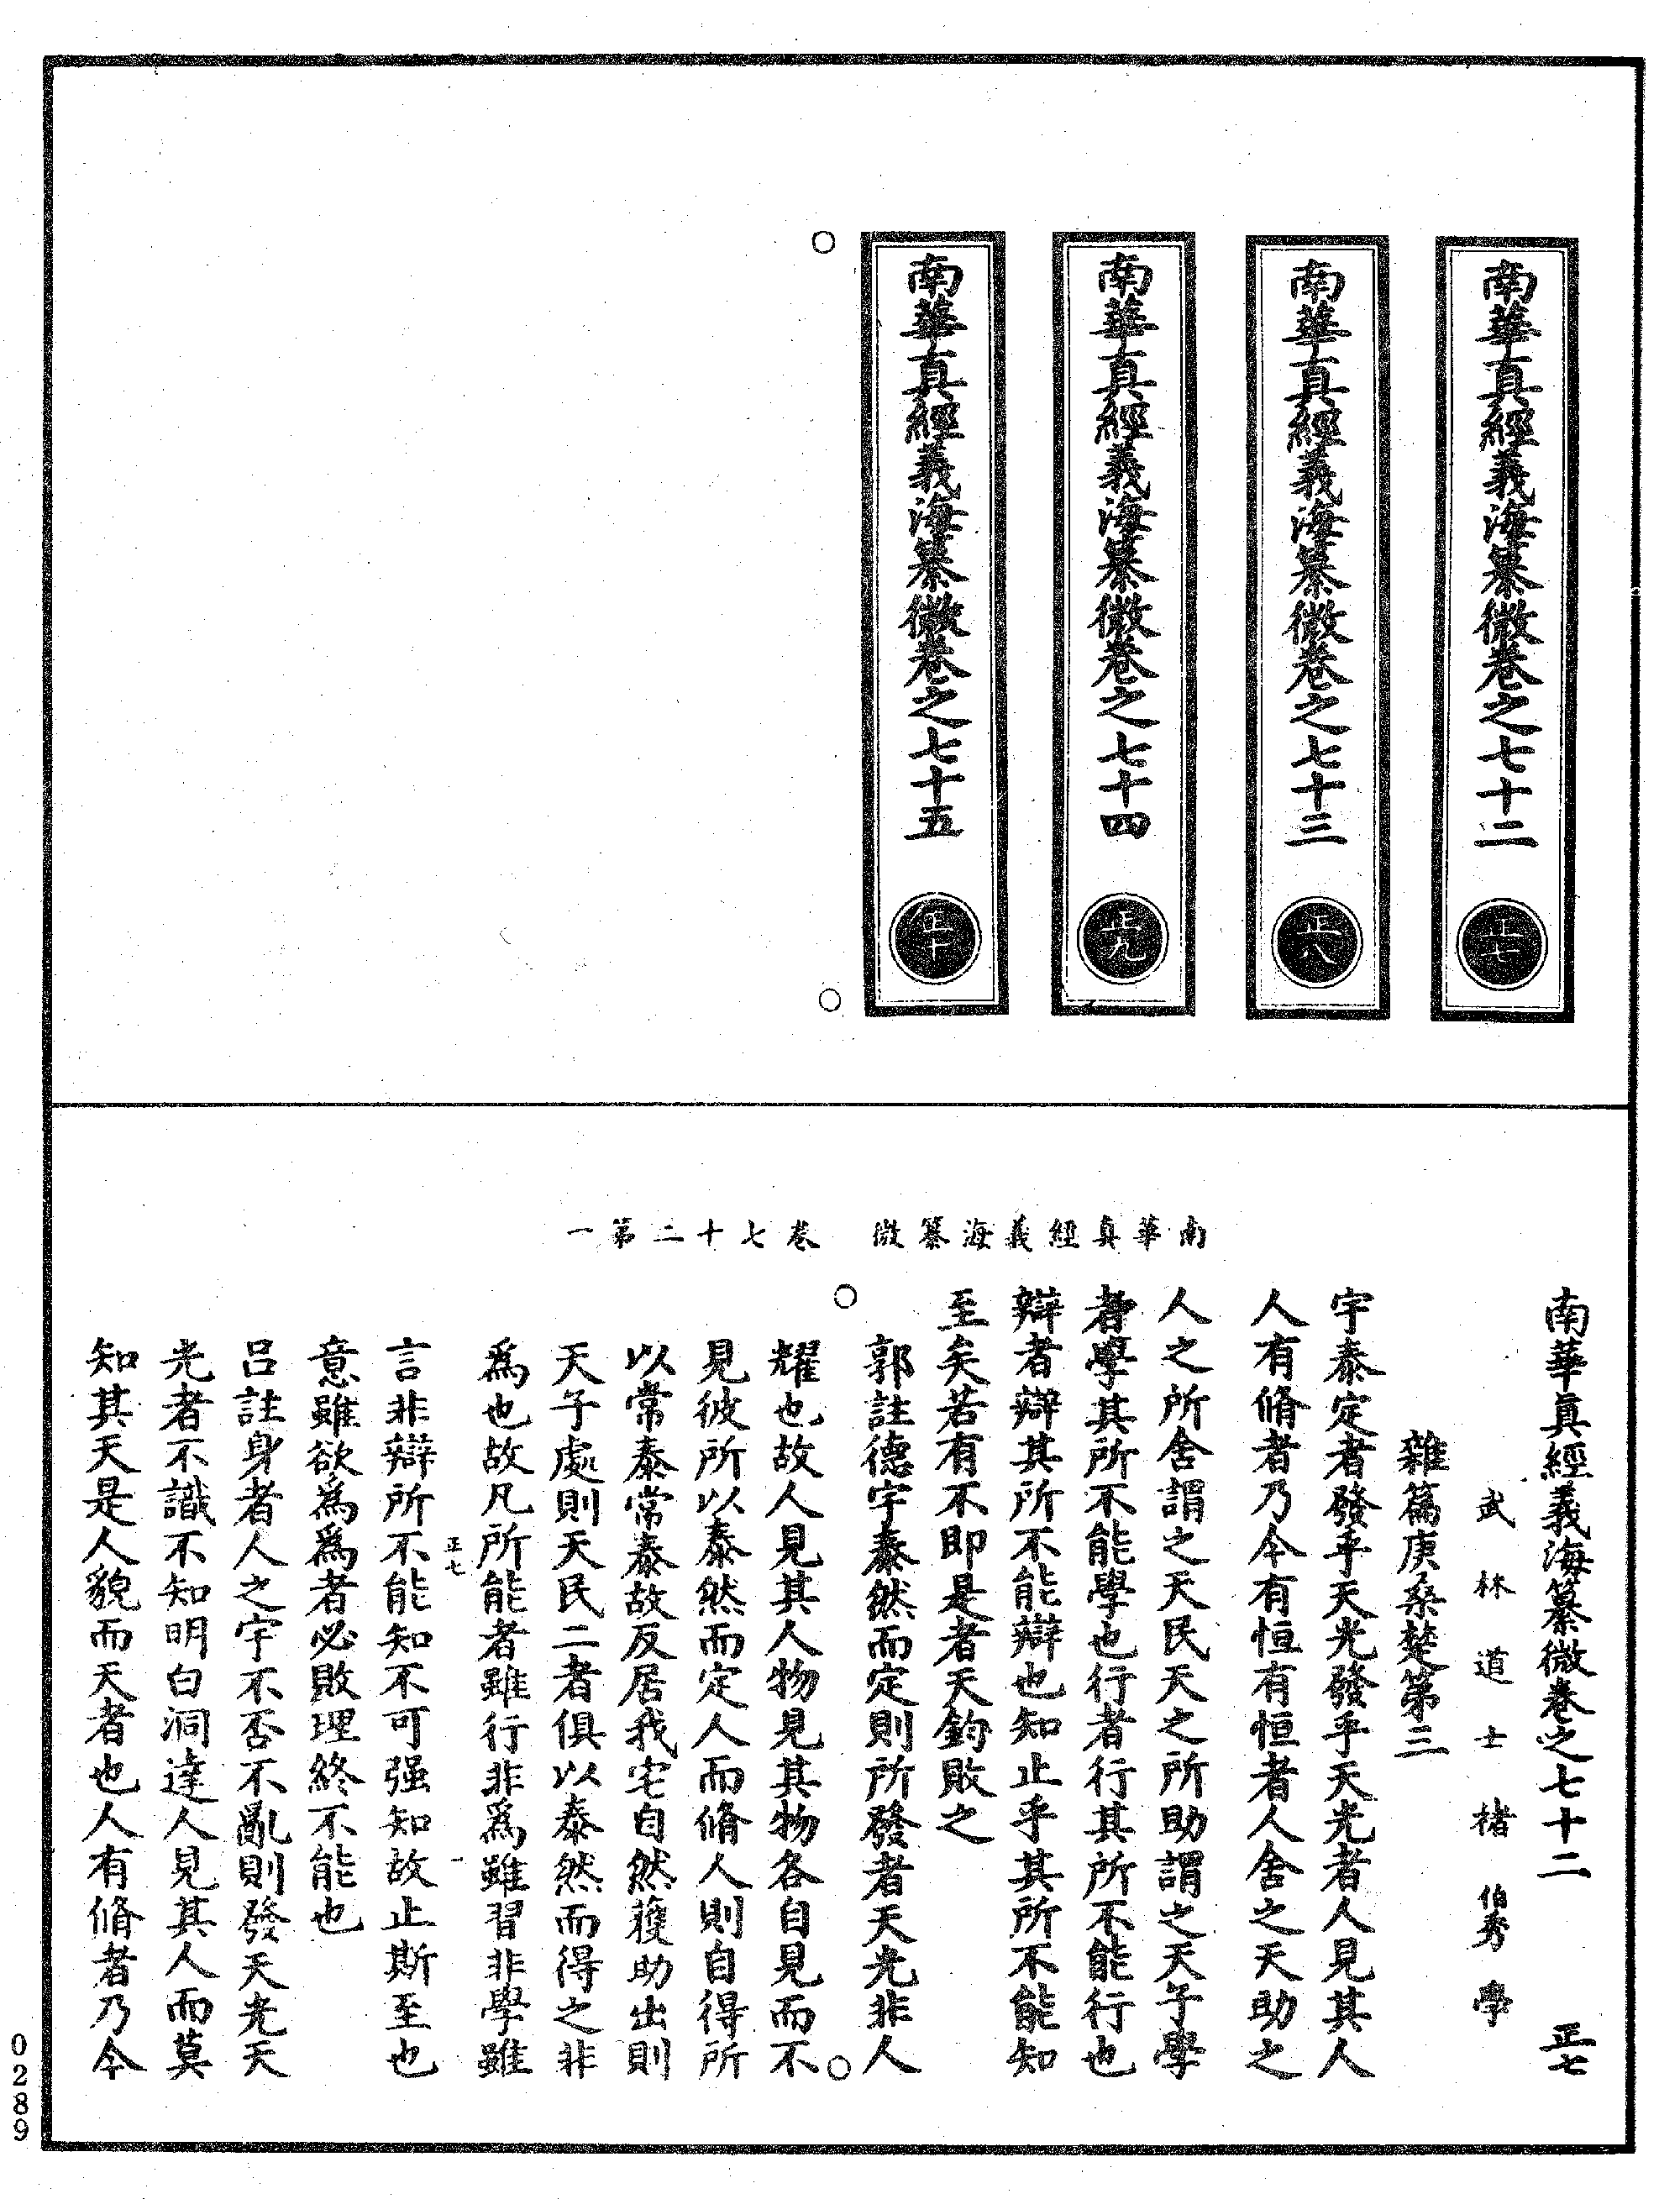 南華真經義海纂微卷之七十二
正七
南華真經義海纂微卷之七十三
正八
南華真經義海纂微卷之七十四
正九
南華真經義海纂微卷之七十五
正十
南華真經義海纂微 卷七十二第一
南華真經義海纂微卷之七十二 正七
武林道士褚伯秀學
雜篇庚桑楚第三
宇泰定者發乎天光發乎天光者人見其人
人有脩者乃今有恒有恒者人舍之天助之
人之所舍謂之天民天之所助謂之天子學
者學其所不能學也行者行其所不能行也
辯者辯其所不能辯也知止乎其所不能知
至矣若有不即是者天鈞敗之
郭註德宇泰然而定則所發者天光非人
耀也故人見其人物見其物各自見而不
見彼所以泰然而定人而脩人則自得所
以常泰常泰故反居我宅自然獲助出則
天子處則天民二者俱以泰然而得之非
為也故凡所能者雖行非為雖習非學雖
正七 一
言非辯所不能知不可强知故止斯至也
意雖欲為為者必敗理終不能也
呂註身者人之宇不否不亂則發天光天
光者不識不知明白洞達人見其人而莫
知其天是人貌而天者也人有脩者乃今
0289